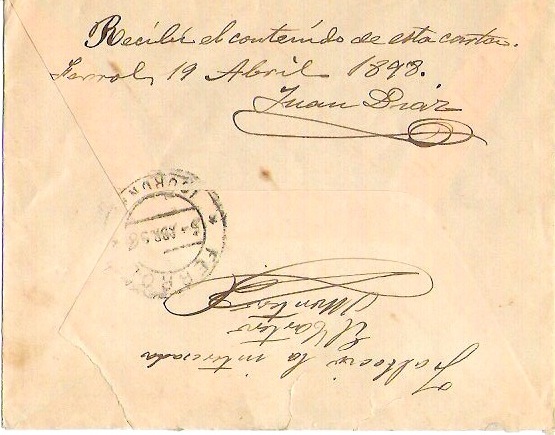 Recibi el contenido de esta carta.
Ferrol, 19 Abril 1898.
Juan Diaz
(CORUÑA)
ABR 98
* FERROL *
Falleció la interesada
El Cartero